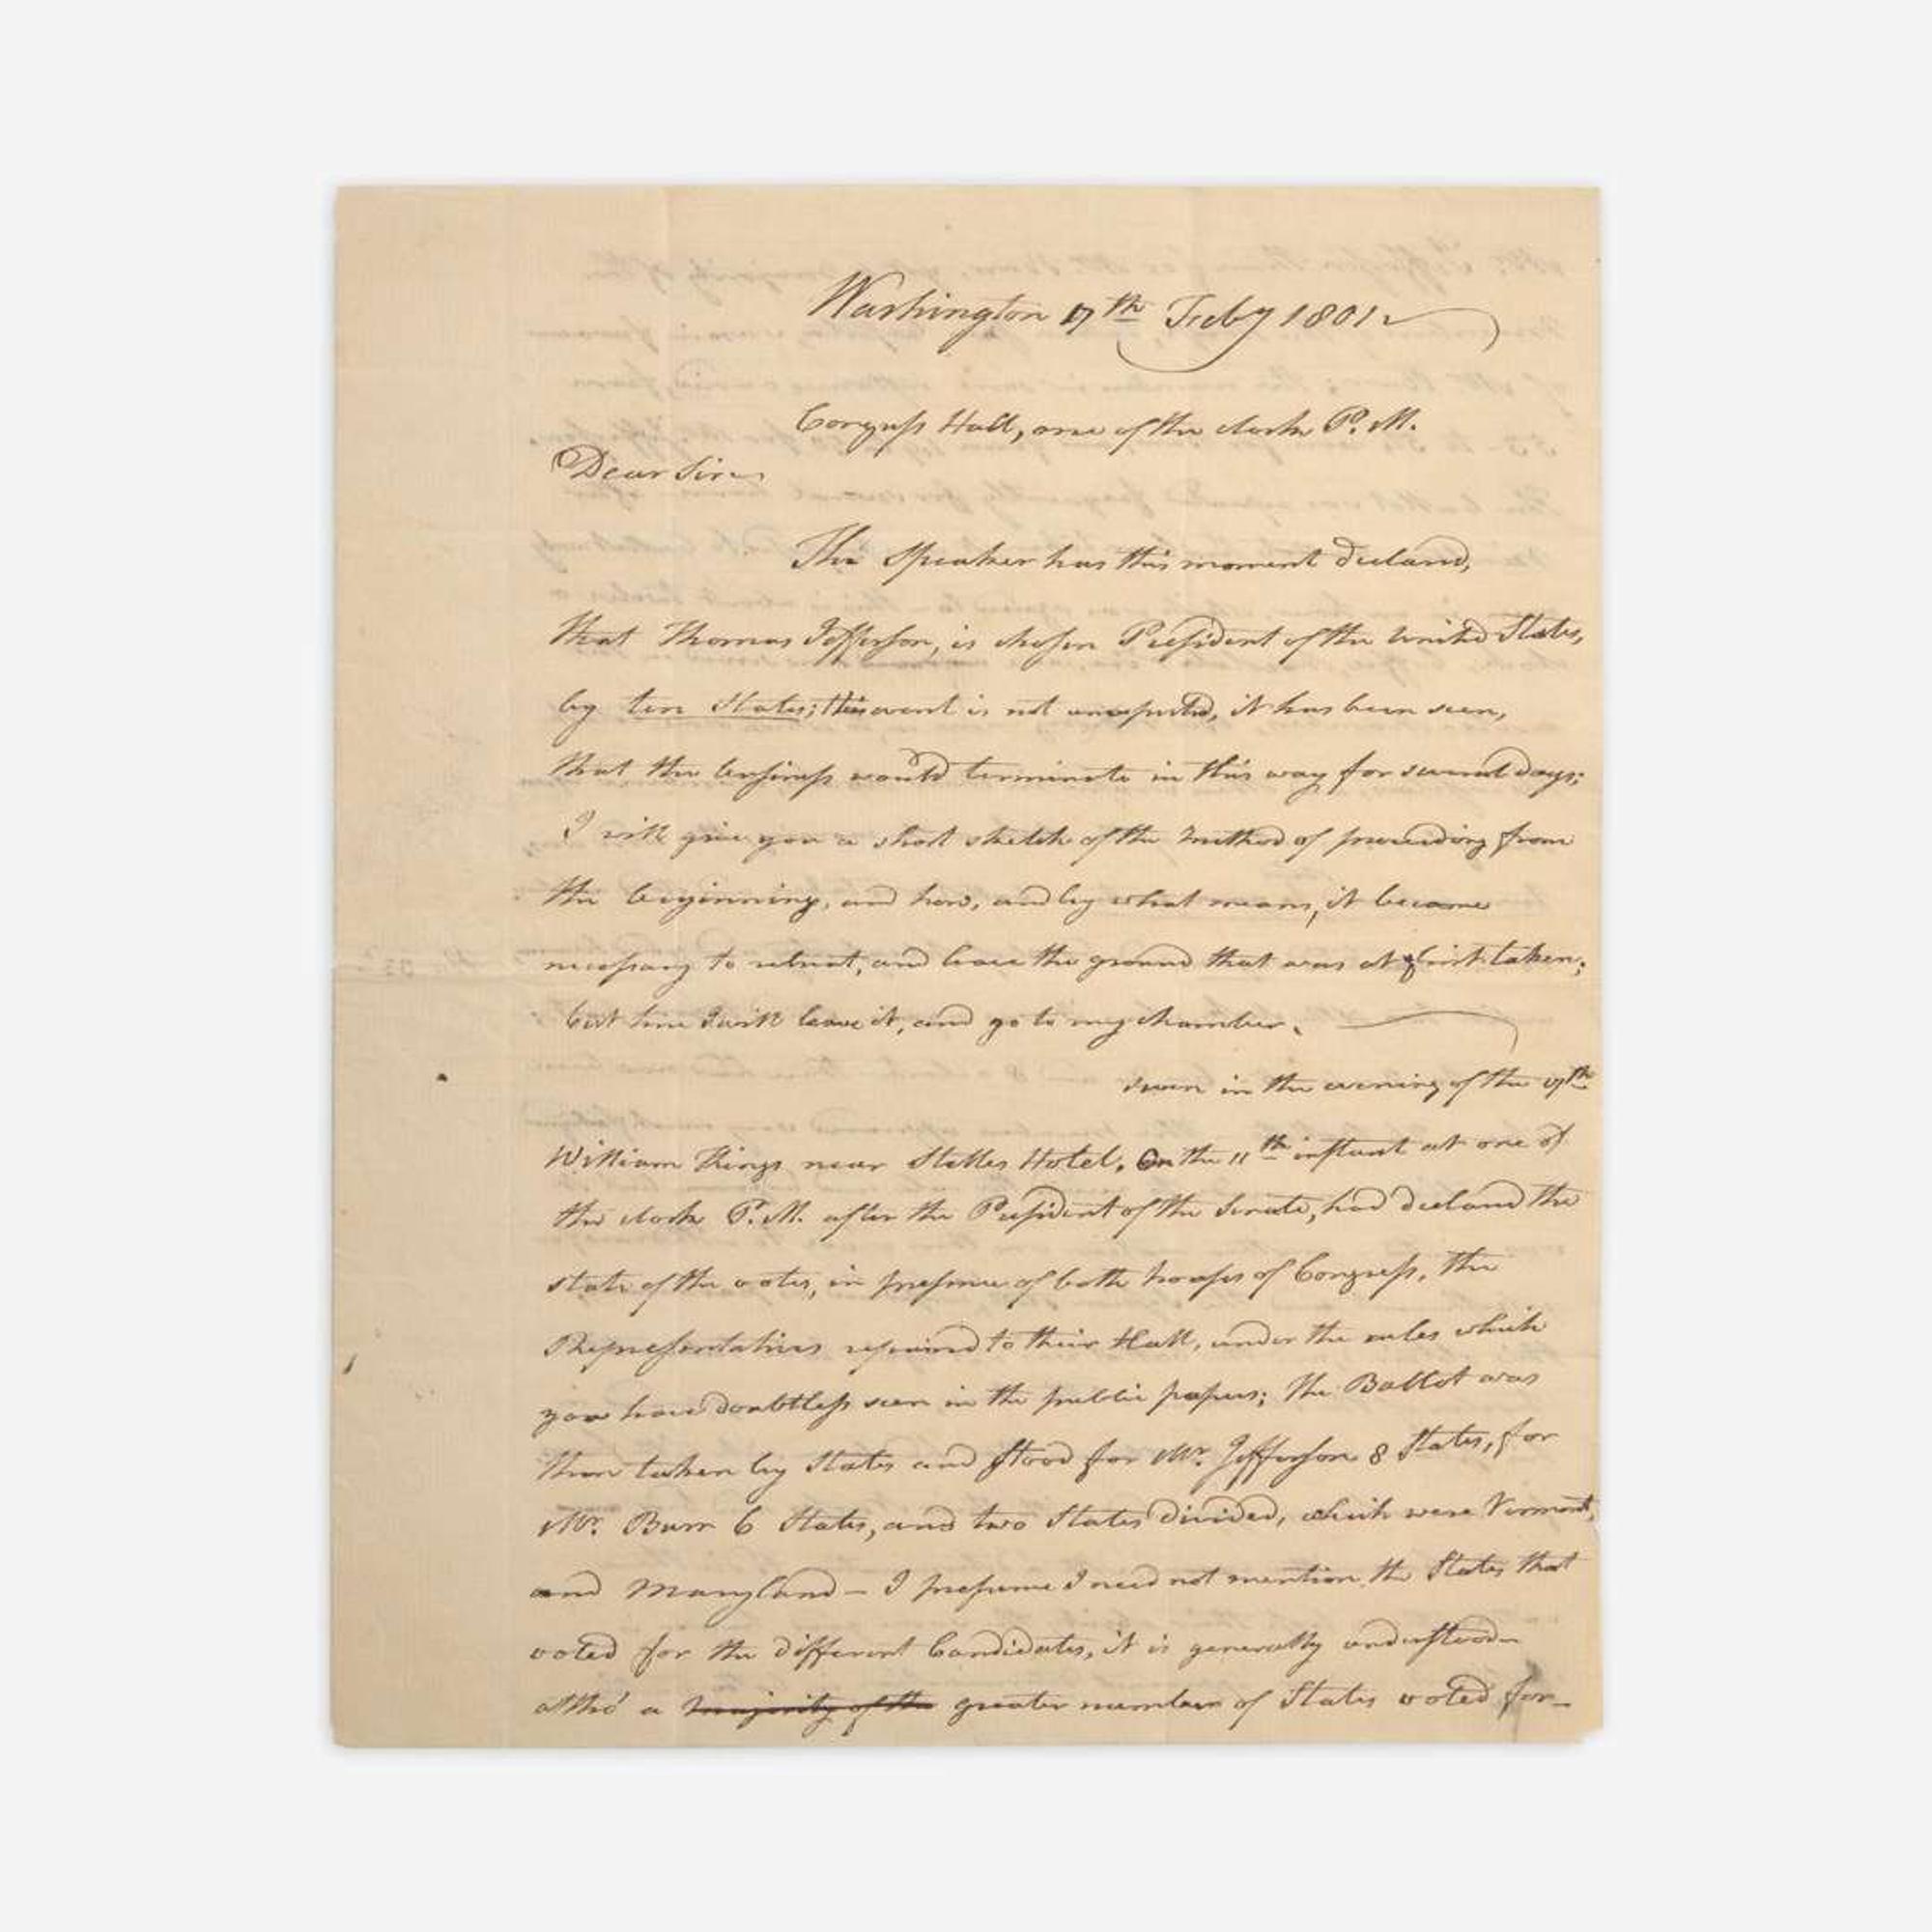 Washington 17th Feby 1801
Congress Hall, one of the clock P.M.
Dear Sir
The Speaker has this moment declared,
that Thomas Jefferson, is chosen President of the United States,
by ten States; this event is not unexpected, it has been seen,
that the business would terminate in this way for several days;
I will give you a short sketch of the method of proceeding from
the beginning, and how, and by what means, it became
necessary to retreat, and leave the ground that was at first taken;
but here I will leave it, and go to my chamber.
seven in the evening of the 17th
William Rings near Stelles Hotel, On the 11th instant at one of
the clock P.M. after the President of the Senate, had declared the
state of the votes, in presence of both houses of Congress, the
Representatives repaired to their Hall, under the rules which
you have doubtless seen in the public papers; the Ballot was
then taken by States and stood for Mr. Jefferson 8 States, for
Mr. Burr 6 States, and two States divided, which were Vermont,
and Maryland — I presume I need not mention the States that
voted for the different Candidates, it is generally understood
altho' a majority of the greater number of States voted for